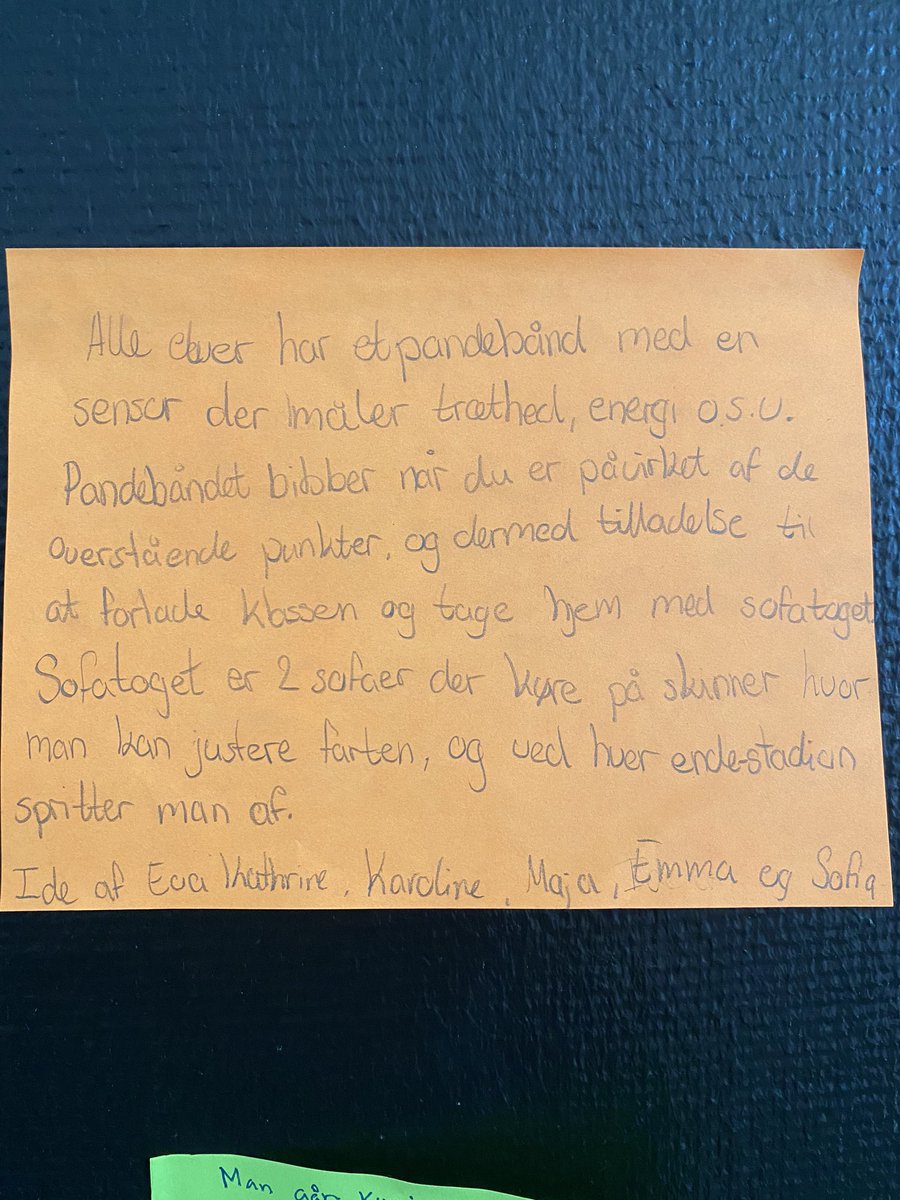 Alle elever har et pandebånd med en
sensor der måler træthed, energi o.s.v.
Pandebåndet bibber når du er påvirket af de
overstående punkter, og dermed tilladelse til
at forlade klassen og tage hjem med sofatoget
Sofatoget er 2 sofaer der køre på skinner hvor
man kan justere farten, og ved hver ende-stadion
spritter man af.
Ide af Eva Kathrine, Karoline, Maja, Emma og Sofia
Man går